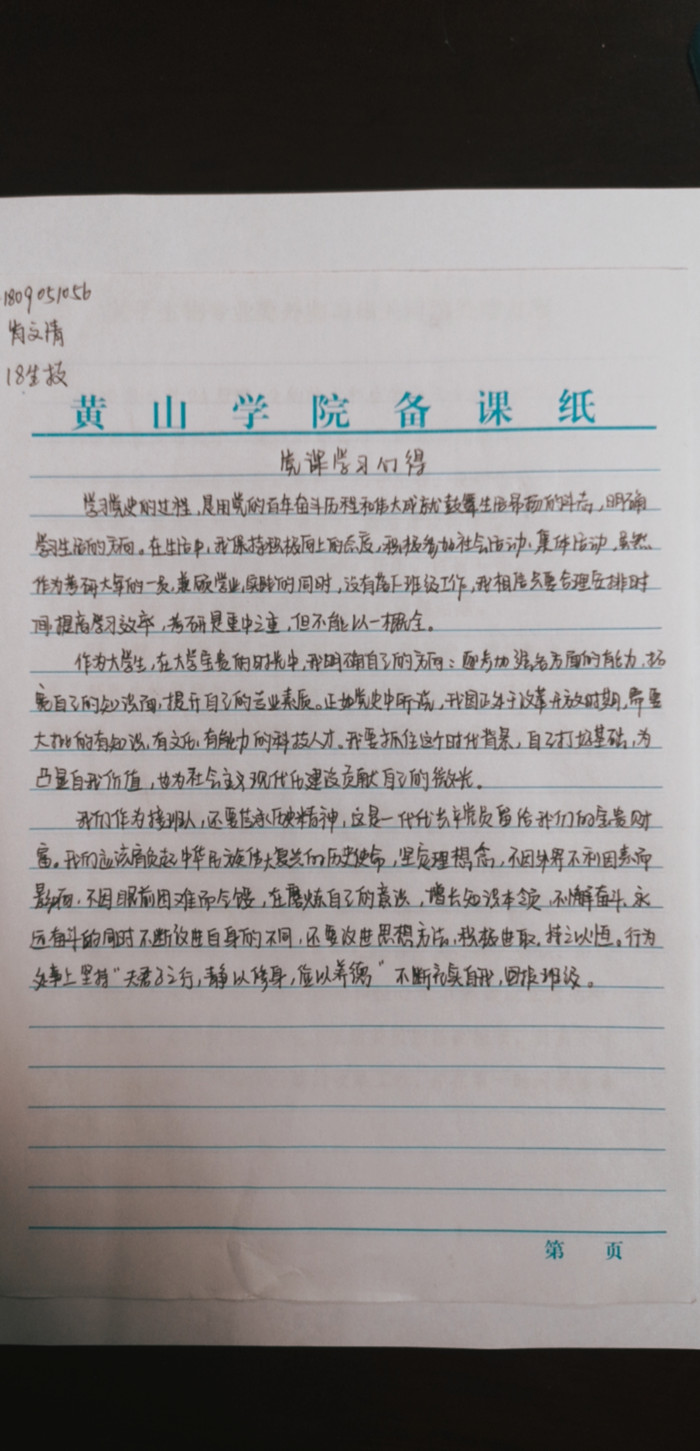 1809051056
肖文清
18生技
黄山学院备课纸
党课学习心得
学习党史的过程,是用党的百年奋斗历程和伟大成就鼓舞生活昂扬的斗志,明确
学习生活的方向。在生活中,我保持积极向上的态度,积极参加社会活动、集体活动,虽然
作为考研大军的一员,兼顾学业,实践的同时,没有落下班级工作,我相信只要合理安排时
间提高学习效率,考研是重中之重,但不能以一概全。
作为大学生,在大学宝贵的时光中,我明确自己的方向:要参加涉各方面的有能力,拓
宽自己的知识面,提升自己的专业素质。正如党史中所说,我国正处于改革开放时期,需要
大批的有知识,有文化,有能力的科技人才。我要抓住这个时代背景,自己打好基础,为
凸显自我价值,也为社会主义现代化建设贡献自己的微光。
我们作为接班人,还要传承历史精神,这是一代代老年党员留给我们的宝贵财
富。我们应该肩负起中华民族伟大复兴的历史使命,坚定理想信念,不因外界不利因素而
影响,不因眼前困难而今馁,在磨炼自己的意识,增长知识本领,不懈奋斗、永
远奋斗的同时不断改进自身的不同,还要改进思想方法,积极进取,持之以恒。行为
处事上坚持“夫君子之行,静以修身,俭以养德”不断充实自我,回报班级。
第 页